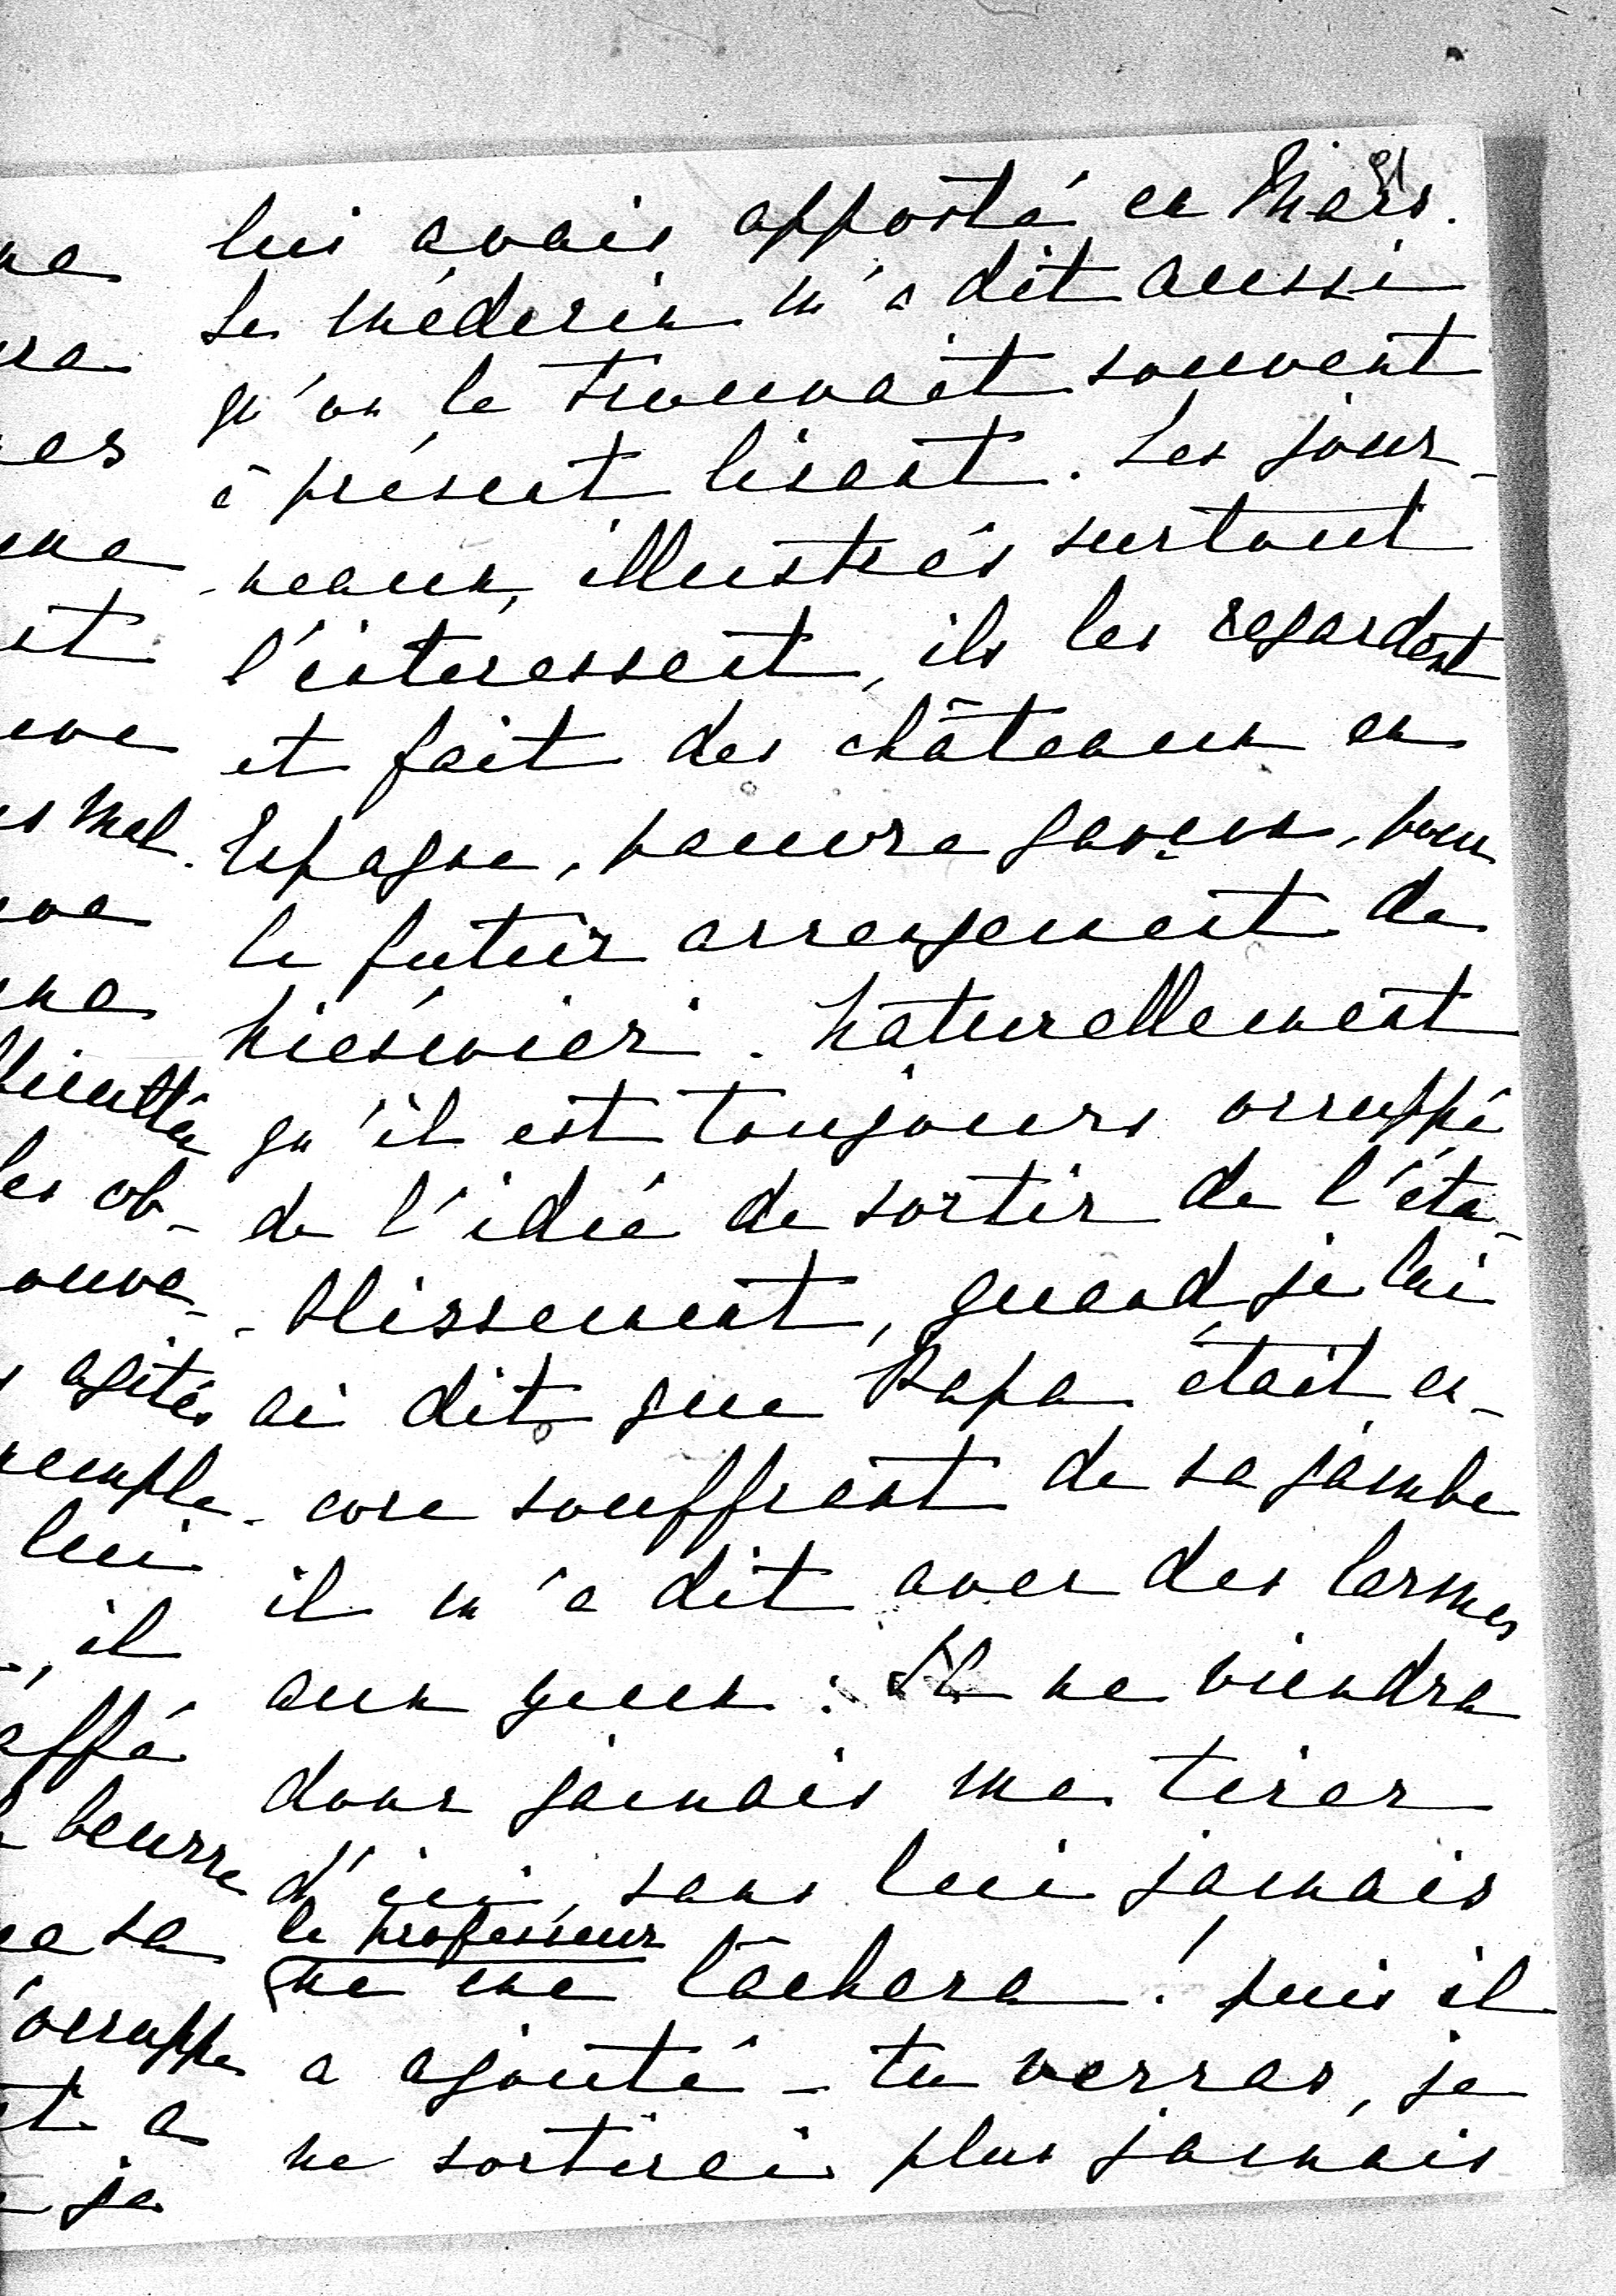 lui avais apporté en Mars.
Le médecin m'a dit aussi
qu'on le trouvait souvent
à présent lisant. Les jour-
-neaux, illustrés surtout
l'interessent, ils les regardent
et fait des châteaux en
Espagne, pauvre garçon, pour
le futur arrengement de
Naturellement
qu'il est toujours occuppé
de l'idée de sortir de l'éta-
-blissement, quand je lui
ai dit que Papa était en-
-core souffrant de sa jambe
il m'a dit avec des larmes
aux yeux : Il ne viendra
donc jamais me tirer
d'ici, sans lui jamais
le professeur
ne me lâchera ! puis il
a ajouté - tu verras, je
ne sortirai plus jamais